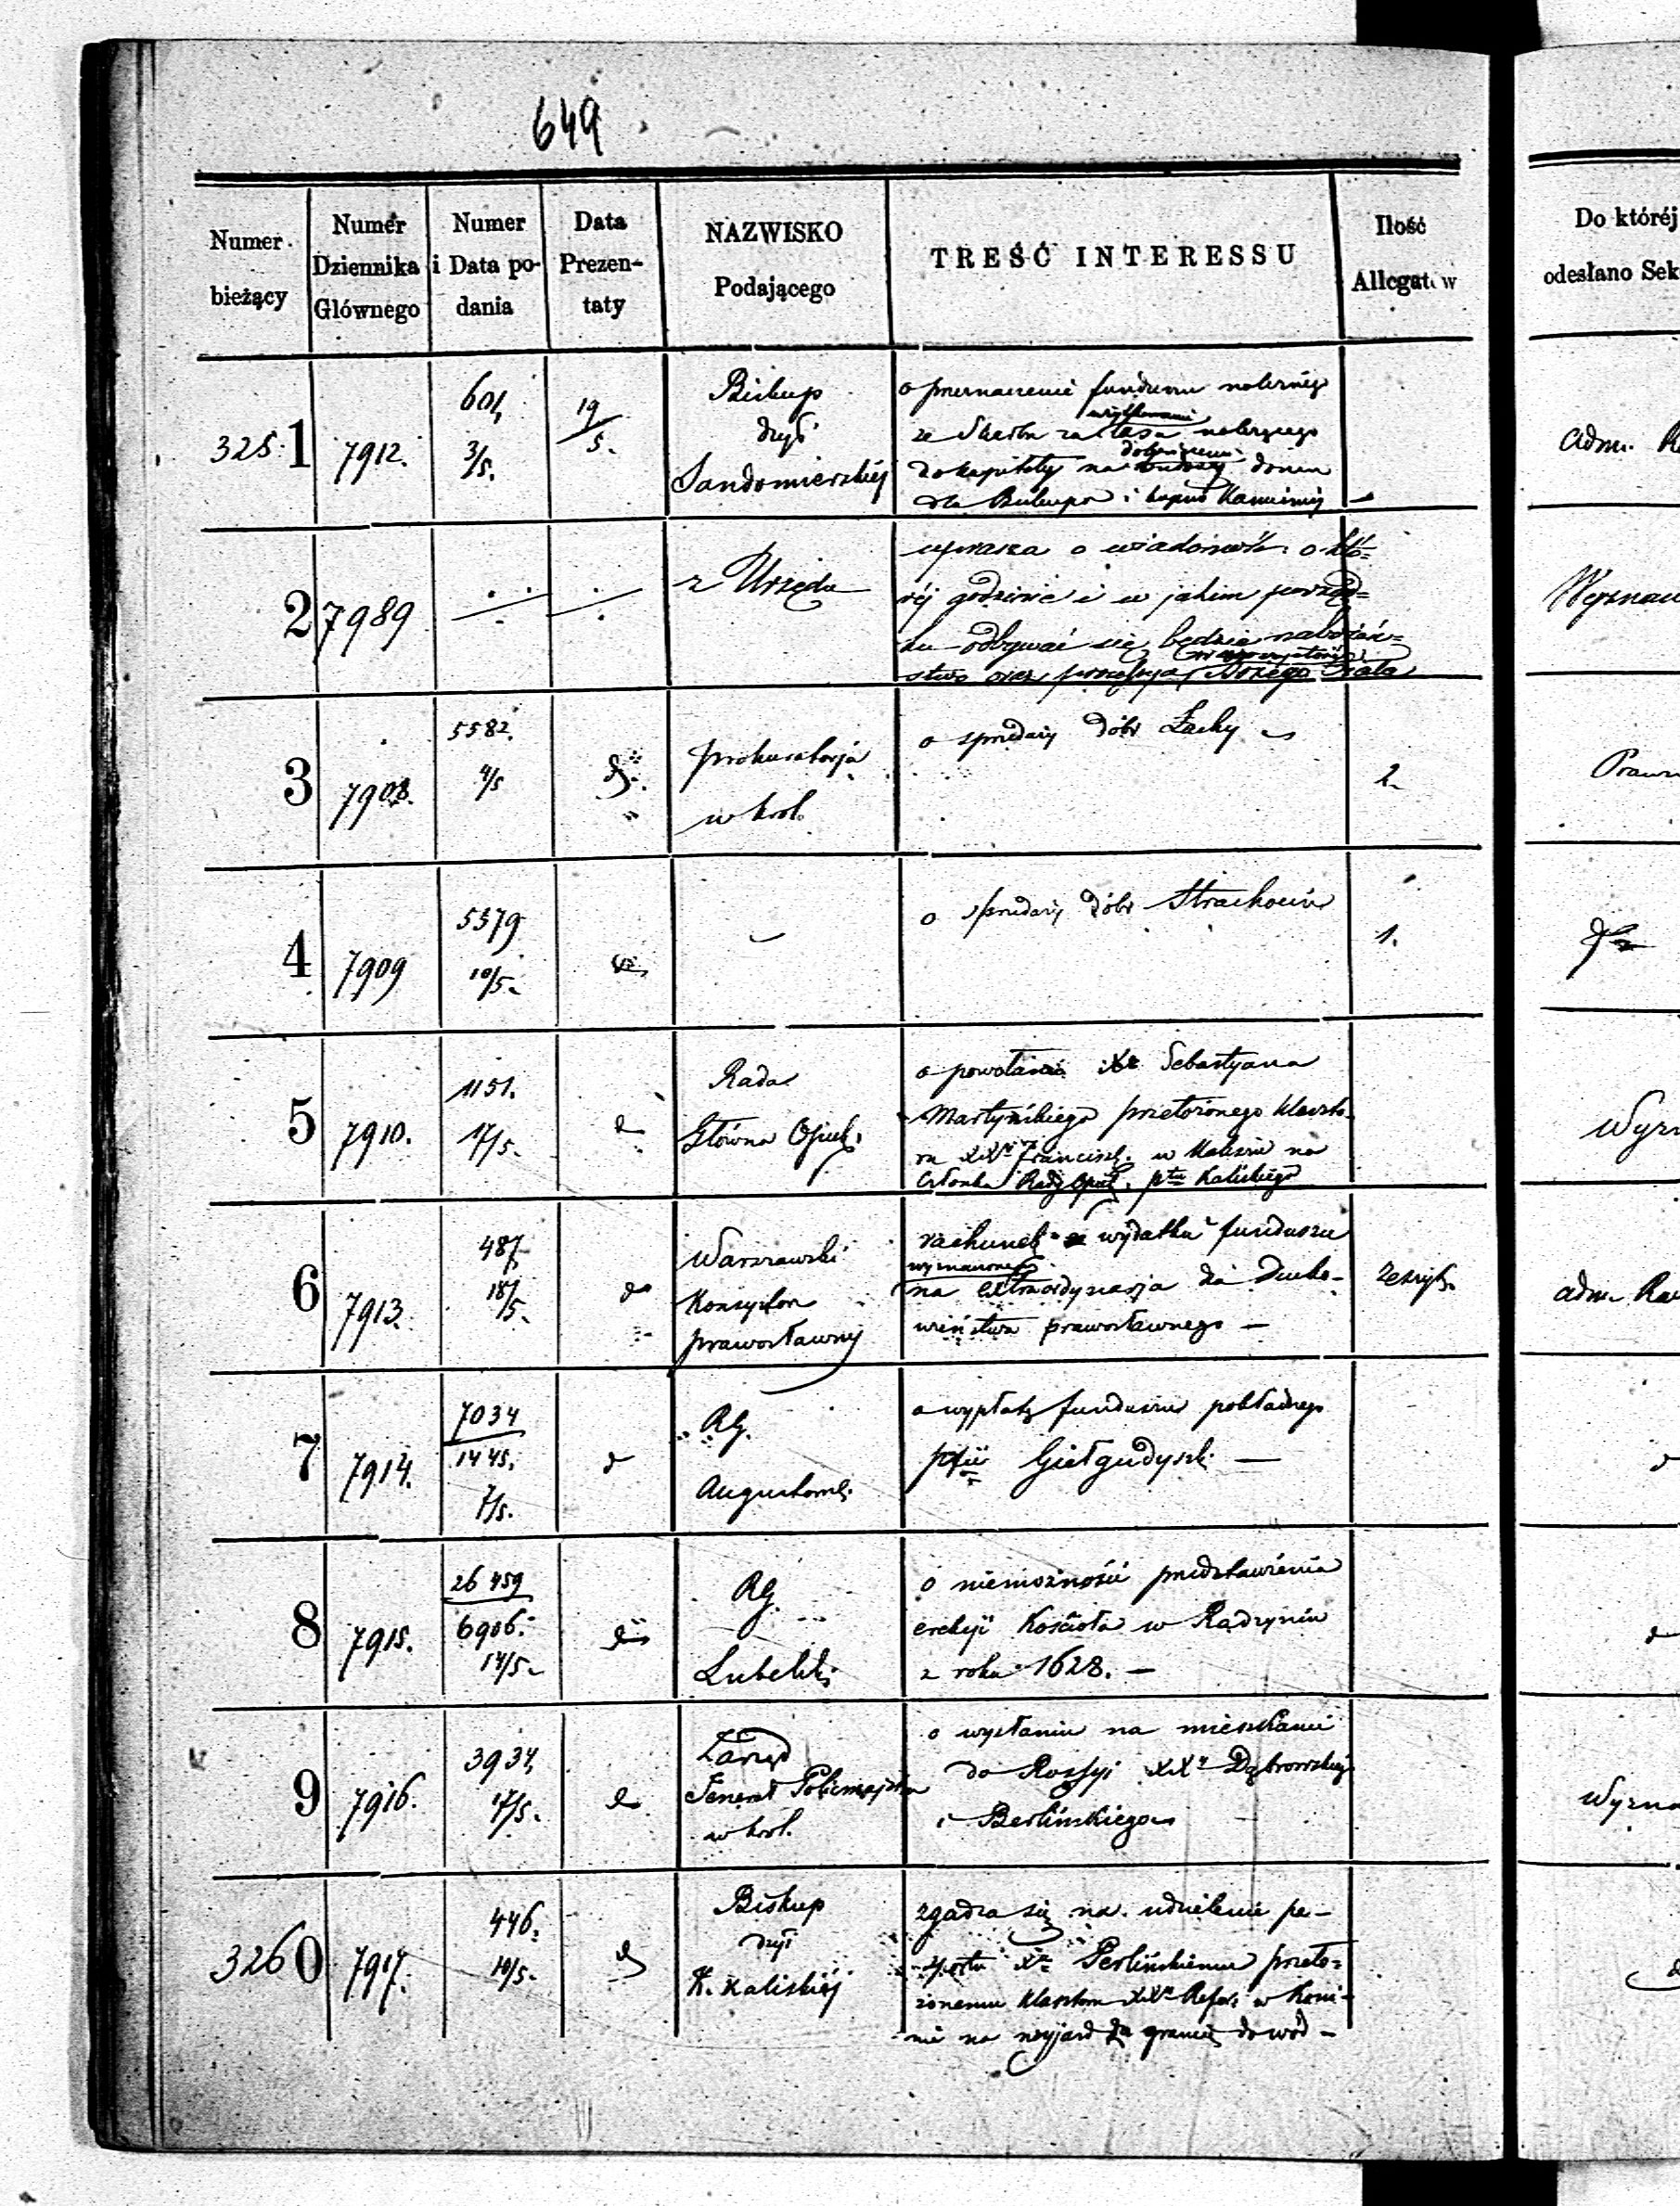 649
Numer bieżący
Numer Dziennika Głównego
Numer i Data podania
Data Prezentaty
NAZWISKO Podającego
TREŚĆ INTERESSU
Ilość Allegatów
Do któréj
odesłano Sek
3251
7912.
601,
3/5.
19/5.
Biskup
dyć
Sandomierskiéj
o przeznaczenie funduszu należnego
ze Skarbu za lasa należącego
do kapituły na domu
dla Biskupa i
adm.
2
7989
z Urzędu
uprasza o wiadomość o któ=
réj godzinie i w jakim porząd=
ku odbywać się będzie nabożeń=
stwo oraz processya Bożego Ciała
Wyznań
3
7908.
5582.
4/5
Prokuratorja
w król.
o sprzedaży dóbr Łachy
2.
4
7909
5379
10/5.
o sprzedaży dóbr Strachocin
1.
5
7910.
1151.
17/5.
Rada
Główna Opiek.
o powołanie Xa Sebastyana
Martyńskiego przełożonego klaszto-
ru XX Francisk. w Kaliszu na
Członka Rady Opiek. ptu Kaliskiego
Wyzn
6
7913.
487.
18/5.
Warszawski
Konsystorz
prawosławny
rachunek z wydatku funduszu
wyznaczonego
na extraordynarja dla Ducho-
wieństwa prawosławnego —
Zeszyt.
adm.
7
7914.
7034
1445.
7/5.
RG.
Augustows.
o wypłatę funduszu pokładnego
Giełgudyszk. —
8
7915.
26459
6906.
14/5.
RG.
Lubelski
o niemożności przedstawienia
erekcyi Kościoła w Radzyniu
z roku 1628. —
9
7916.
3934,
17/5.
Zarząd
Jenerał Policmajstra
w król.
o wysłaniu na mieszkanie
do Rossyi XX Dąbrowskiego
i Berlińskiego
Wyzna
3260
7917.
446.
10/5.
Biskup
dyć
K. Kaliskiéj
zgadza się na udzielenie pa-
szportu Xu Perlińskiemu przeło=
żonemu klasztoru XX Refor. w Koni-
nie na wyjazd za granicę do wód —